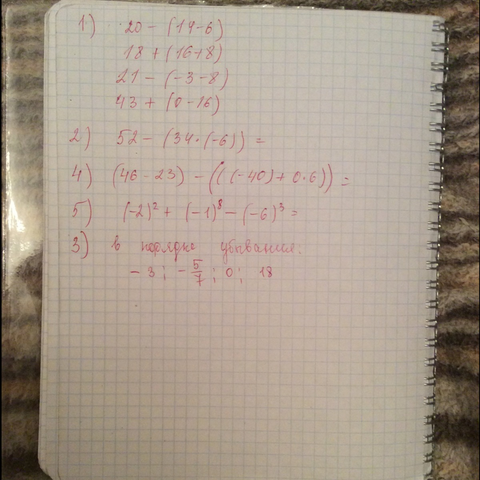 1) 20 - (19-6)
18 + (16+8)
21 - (-3-8)
43 + (0-16)
2) 52 - (34·(-6)) =
4) (46-23) - ((·(-40)+0·6)) =
5) (-2)² + (-1)⁸ - (-6)³ =
3) в порядке убывания.
-3; -5/7; 0; 18